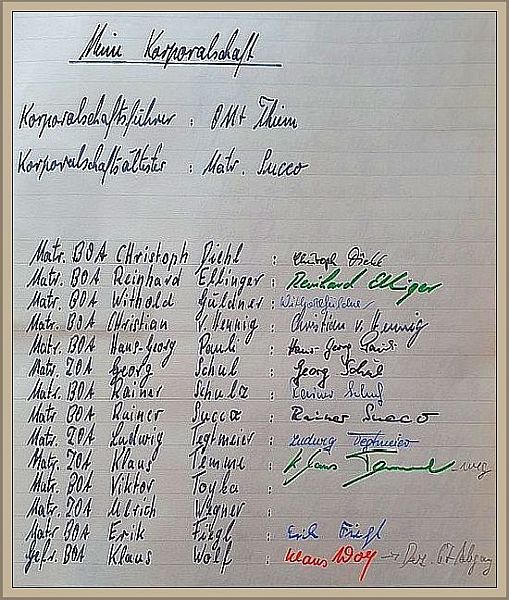 Meine Korporalschaft
Korporalschaftsführer : OMt Thiem
Korporalschaftsältester : Matr. Succo
Matr. BOA Christoph Diehl : Christoph Diehl
Matr. BOA Reinhard Ellinger : Reinhard Ellinger
Matr. BOA Withold Güldner :
Matr. BOA Christian v. Hennig : Christian v. Hennig
Matr. BOA Hans-Georg Pauli : Hans-Georg Pauli
Matr. ZOA Georg Schul : Georg Schul
Matr. BOA Rainer Schulz : Rainer Schulz
Matr. BOA Rainer Succo : Rainer Succo
Matr. ZOA Ludwig Tegtmeier : Ludwig Tegtmeier
Matr. ZOA Klaus Temme : Klaus Temme - weg
Matr. BOA Viktor Toyka :
Matr. ZOA Ulrich Wegner :
Matr. BOA Erik Fiegl : Erik Fiegl
Gefr. BOA Klaus Wolf : Klaus Wolf → Abgang